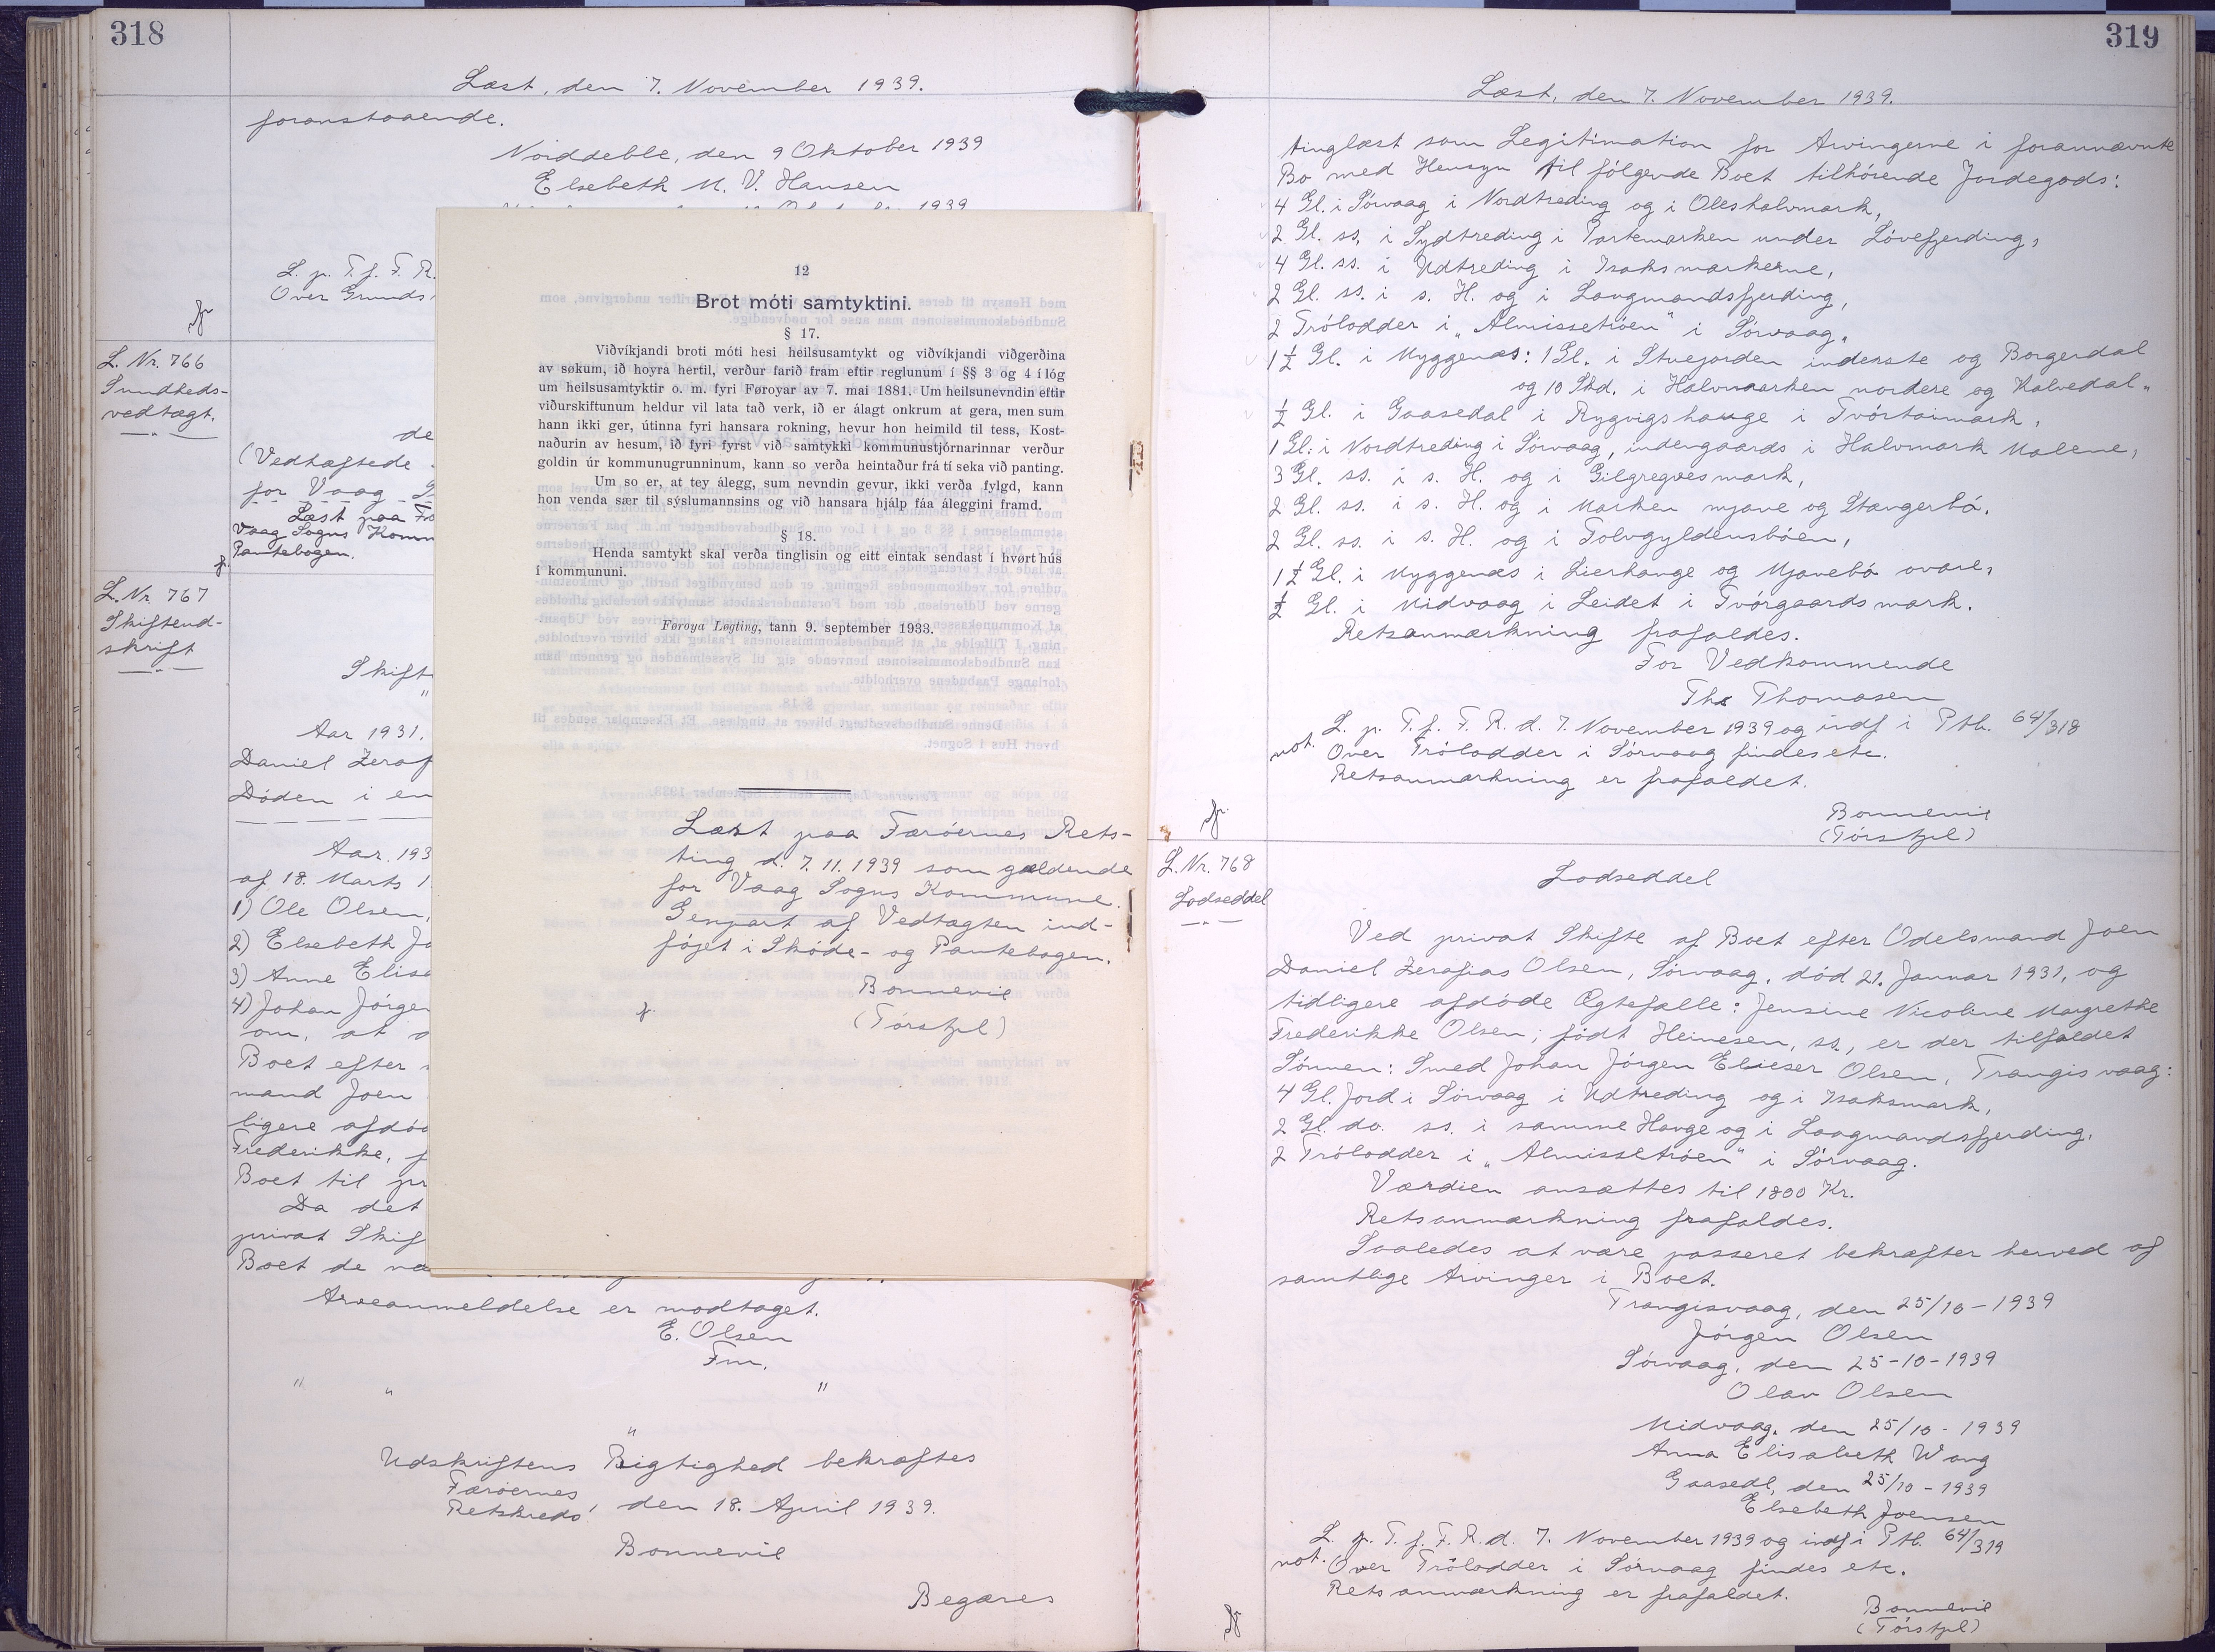 318
Læst, den 7. November 1939.
foranstaaende.
Norddeble, den 9 Oktober 1939
Elsebeth M. V. Hansen
1939
L. p. T. f. F. R.
Over Grunds
L. Nr. 766
Sundheds-
vedtægt.
de
(Vedhæftede
for Vaag
Læst paa Fæ
Vaag Sogns Komm
Pantebogen.
L. Nr. 767
Skifteud-
skrift
Skift
Aar 1931.
Daniel Zeraf
Döden i en
Aar 193
af 18. Marts 1
1) Ole Olsen,
2) Elsebeth Jo
3) Anne Elisa
4) Johan Jörgen
om, at
Boet efter
mand Joen
ligere afdö
Frederikke, f
Boet til pr
Da det
privat Skif
Boet de
Arveanmeldelse er modtaget.
E. Olsen
Fm.
" " "
"
Udskriftens Rigtighed bekræftes
Færøernes
Retskreds, den 18. April 1939.
Bonnevie
Begæres
12
Brot móti samtyktini.
§ 17.
Viðvíkjandi broti móti hesi heilsusamtykt og viðvíkjandi viðgerðina
av søkum, ið hoyra hertil, verður farið fram eftir reglunum í §§ 3 og 4 í lóg
um heilsusamtyktir o. m. fyri Føroyar av 7. mai 1881. Um heilsunevndin eftir
viðurskiftunum heldur vil lata tað verk, ið er álagt onkrum at gera, men sum
hann ikki ger, útinna fyri hansara rokning, hevur hon heimild til tess, Kost-
naðurin av hesum, ið fyri fyrst við samtykki kommunustjórnarinnar verður
goldin úr kommunugrunninum, kann so verða heintaður frá tí seka við panting.
Um so er, at tey álegg, sum nevndin gevur, ikki verða fylgd, kann
hon venda sær til sýslumannsins og við hansara hjálp fáa áleggini framd.
§ 18.
Henda samtykt skal verða tinglisin og eitt eintak sendast í hvørt hús
í kommununi.
Føroya Løgting, tann 9. september 1933.
Læst paa Færöernes Rets-
ting d. 7. 11. 1939 som gældende
for Vaag Sogns Kommune.
Genpart af Vedtægten ind-
föjet i Sköde- og Pantebogen.
Bonnevie
(Törsfpl)
319
Læst, den 7. November 1939.
tinglæst som Legitimation for Arvingerne i forannævnte
Bo med Hensyn til fölgende Boet tilhörende Jordegods:
4 Gl. i Sörvaag i Nordtreding og i Oleshalvmark,
2 Gl. ss. i Sydtreding i Partemarken under Lövefjerding,
4 Gl. ss. i Udtreding i Isaksmarkerne,
2 Gl. ss. i s. H. og i Laugmandsfjerding,
2 Trölodder i "Almissetröen" i Sörvaag,
1 1/2 Gl. i Myggenæs: 1 Gl. i Stuejorden inderste og Borgerdal
og 10 Skd. i Halvmarken nordere og Kalvedal,
1/2 Gl. i Gaasedal i Rygvigshauge i Tvörtaimark,
1 Gl. i Nordtreding i Sörvaag, indengaards i Halvmark Malene,
3 Gl. ss. i s. H. og i Gilgregvesmark,
2 Gl. ss. i s. H. og i Marken mjave og Stangerbö,
2 Gl. ss. i s. H. og i Tolvgyldensböen,
1 1/2 Gl. i Myggenæs i Lierhauge og Mjavebö ovare,
1/2 Gl. i Midvaag i Leidet i Tvörgaardsmark.
Retsanmærkning frafaldes.
For Vedkommende
Ths Thomasen
L. p. T. f. F. R. d. 7. November 1939 og indf i Ptb. 64/318
not. Over Trölodder i Sörvaag findes etc.
Retsanmærkning er frafaldet.
Bonnevie
(Törsfpl)
L. Nr. 768
Lodseddel
Lodseddel
Ved privat Skifte af Boet efter Odelsmand Joen
Daniel Zerafias Olsen, Sörvaag, död 21. Januar 1931, og
tidligere afdöde Ægtefælle: Jensine Nicoline Margrethe
Frederikke Olsen, födt Heinesen, ss., er der tilfaldet
Sönnen: Smed Johan Jörgen Elieser Olsen, Trangisvaag:
4 Gl. Jord i Sörvaag i Udtreding og i Isaksmark,
2 Gl. do. ss. i samme Hauge og i Laagmandsfjerding,
2 Trölodder i "Almissetröen" i Sörvaag.
Værdien ansættes til 1800 Kr.
Retsanmærkning frafaldes.
Saaledes at være passeret bekræfter herved af
samtlige Arvinger i Boet.
Trangisvaag, den 25/10 - 1939
Jörgen Olsen
Sörvaag, den 25-10-1939
Olav Olsen
Midvaag, den 25/10 - 1939
Anna Elisabeth Wang
Gaasedl, den 25/10 - 1939
Elsebeth Joensen
L. p. T. f. F. R. d. 7. November 1939 og indf i Ptb. 64/319
not. Over Trölodder i Sörvaag findes etc.
Retsanmærkning er frafaldet.
Bonnevie
(Törsfpl)